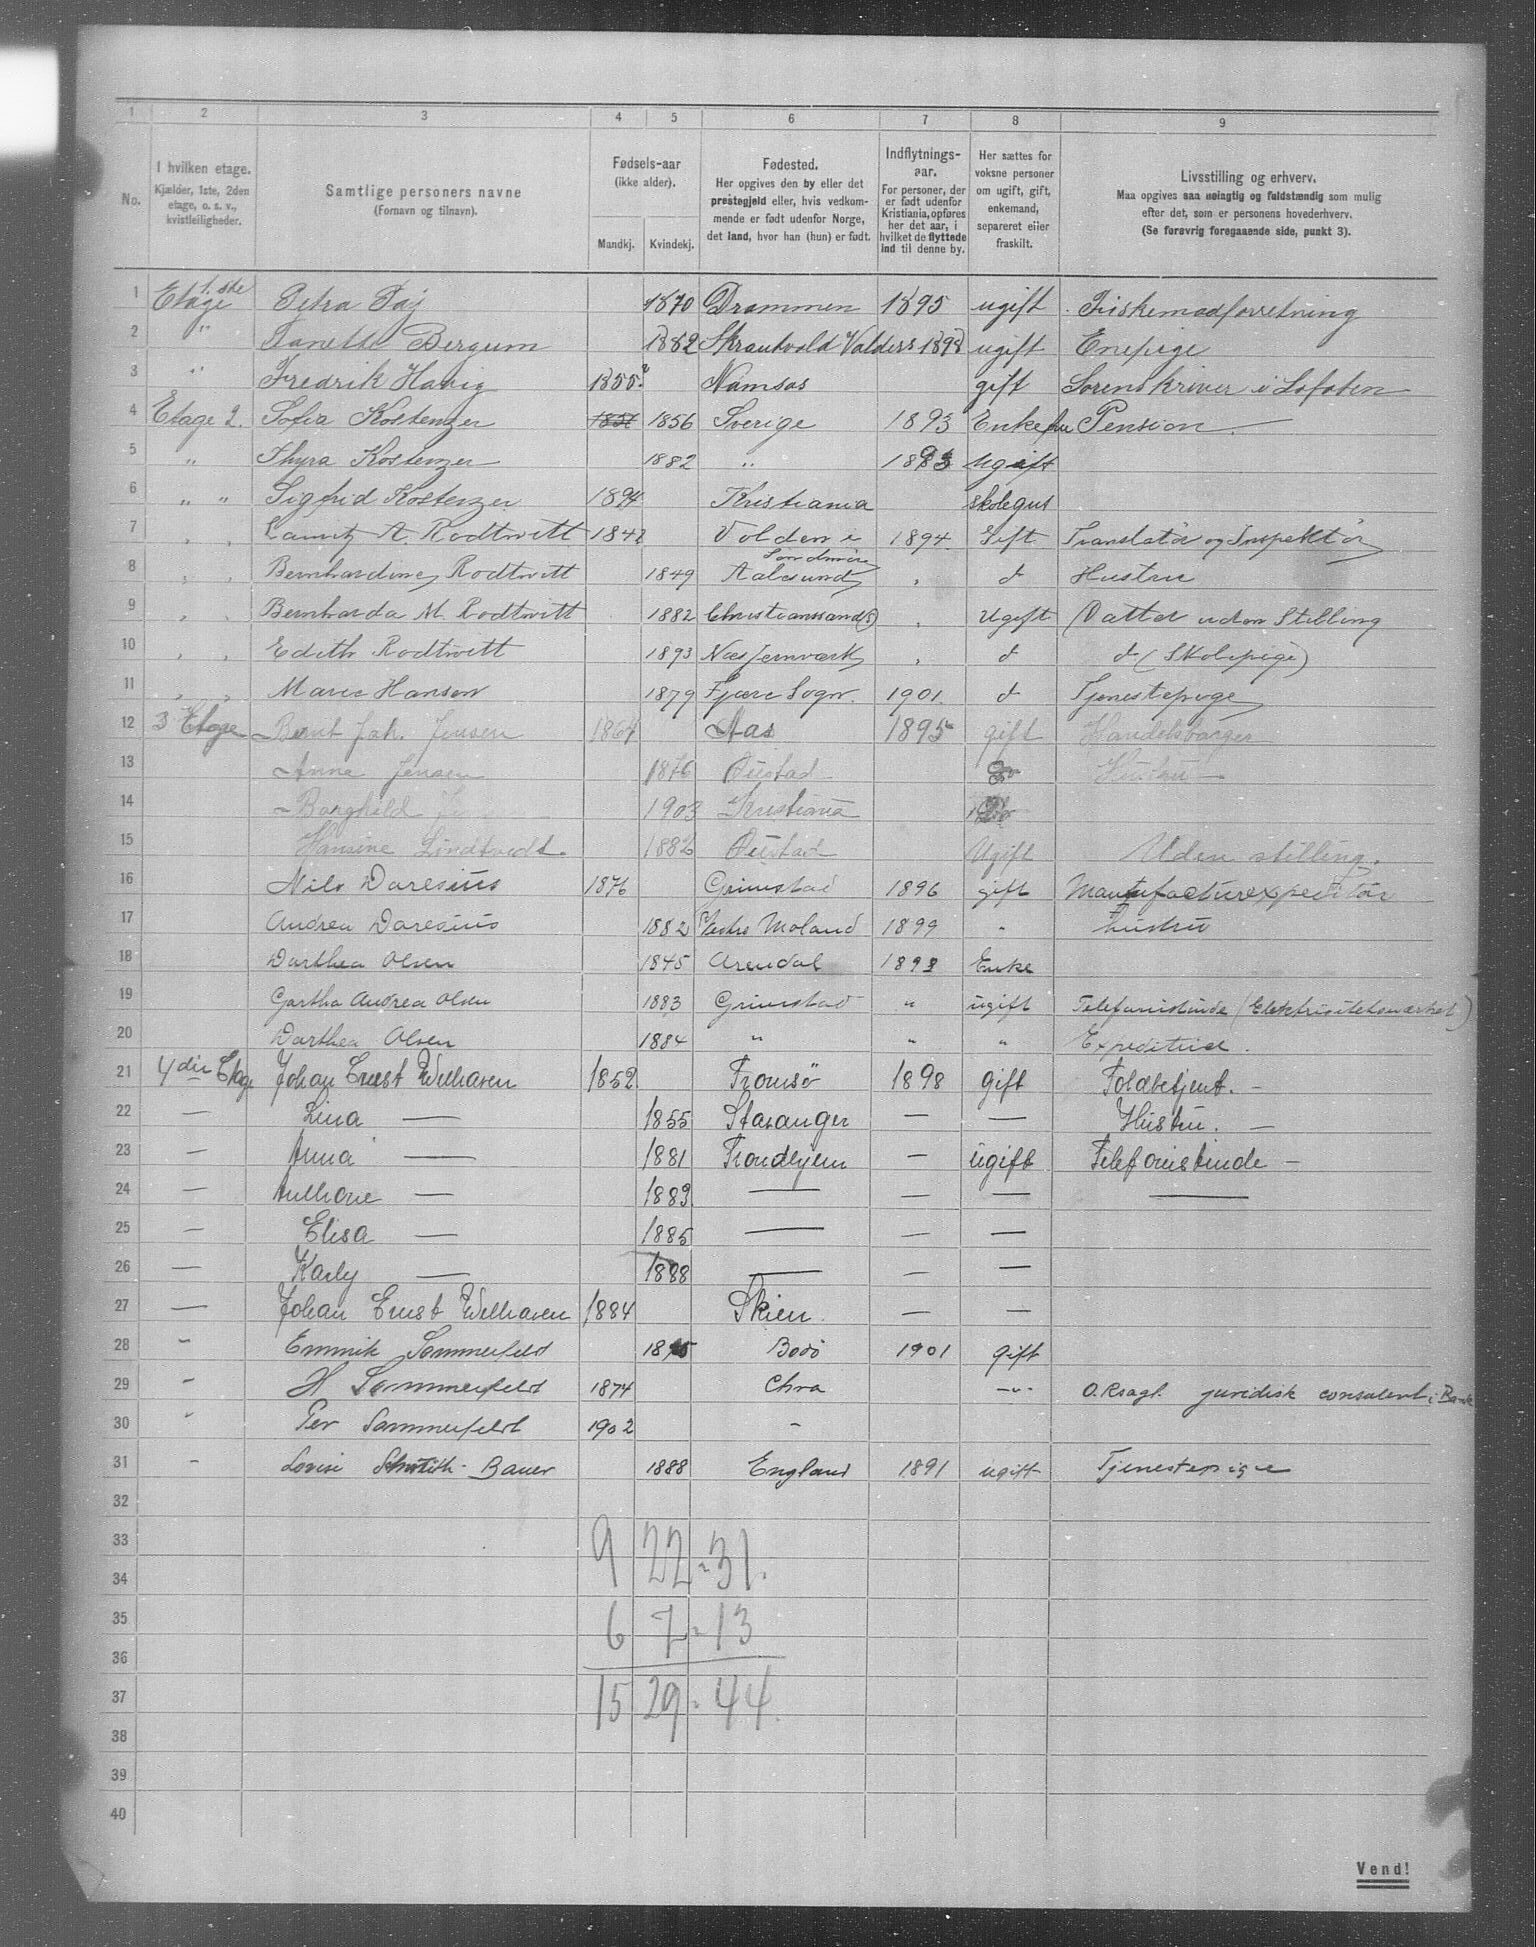 1 2 3 4 5 6 7 8 9
No.
I hvilken etage.
Kjælder, 1ste, 2den
etage, o. s. v.,
kvistleiligheder.
Samtlige personers navne
(Fornavn og tilnavn).
Fødsels-aar
(ikke alder).
Mandkj. Kvindekj.
Fødested.
Her opgives den by eller det
prestegjeld eller, hvis vedkom-
mende er født udenfor Norge,
det land, hvor han (hun) er født.
Indflytnings-
aar.
For personer, der
er født udenfor
Kristiania, opføres
her det aar, i
hvilket de flyttede
ind til denne by.
Her sættes for
voksne personer
om ugift, gift,
enkemand,
separeret eller
fraskilt.
Livsstilling og erhverv.
Maa opgives saa nøingtig og fuldstændig som mulig
efter det, som er personens hovederhverv.
(Se forøvrig foregaaende side, punkt 3).
1 1.ste Etage Petra Faj 1870 Drammen 1895 ugift Fiskemadforretning
2 " Tanette Bergum 1882 Skrautvold Valders 1898 ugift Enepige
3 " Fredrik Havig 1855? Namsos gift Sorenskriver i Lofoten
4 Etage 2. Sofia Kostenzer 1856 1856 Sverige 1893 Enkefru Pension
5 " Thyra Kostenzer 1882 " 1893 Ugift
6 " " Sigfrid Kostenzer 1894 Kristiania skolegut
7 " " Lauritz A. Rodtwitt 1842 Volden i Søndmøre 1894. Gift Translatør og Inspektør
8 " " Bernhardine Rodtwitt 1849 Aalesund " d Hustru
9 " " Bernharda M. Rodtwitt 1882 Christianssand (S) " Ugift Datter uden Stilling
10 " " Edith Rodtwitt 1893 Næs Jernværk " d d (Skolepige)
11 " " Marie Hansen 1879 Fjære Sogn 1901. d Tjenestepige
12 3 Etage Bernt Joh. Jensen 1864 Aas 1895 gift Handelsborger
13 Anna Jensen 1876 Øiestad Hustru
14 Borghild 1903 Kristiania
15 Hansine Lindtvedt 1882 Øiestad Ugift Uden stilling.
16 Nils Daresius 1876 Grimstad 1896 gift Manufacturexpeditør
17 Andrea Daresius 1882 Vestre Moland 1899 " hustru
18 Dorthea Olsen 1845 Arendal 1898 Enke
19 Gartha Andrea Olsen 1883 Grimstad " ugift Telefonistinde (Elektrisitetsværket)
20 Dorthea Olsen 1884 " " " Expeditrice.
21 4die Etage Johan Ernst Welhaven 1852 Tromsø 1898 gift Toldbetjent. –
22 — Lina — 1855 Stavanger — — Hustru. —
23 — Anna — 1881 Trondhjem — ugift Telefonistinde –
24 — — 1883 — — — —
25 — Elisa — 1885 — — —
26 — Karly — 1888 — — —
27 — Johan Ernst Welhaven 1884 Skien — —
28 " Emmik Sommerfeldt Bodø 1901 gift
29 – H Sommerfeldt 1874 Chra -"- O.Rsagf. juridisk consulent i Bank
30 " Per Sommerfeldt 1902 –
31 – Lovise Smith-Bauer 1888 England 1891 ugift Tjenestepige
32
33 9 22 = 31.
34
35 6 7 = 13
36
37 15 29 = 44.
38
39
40
Vend!